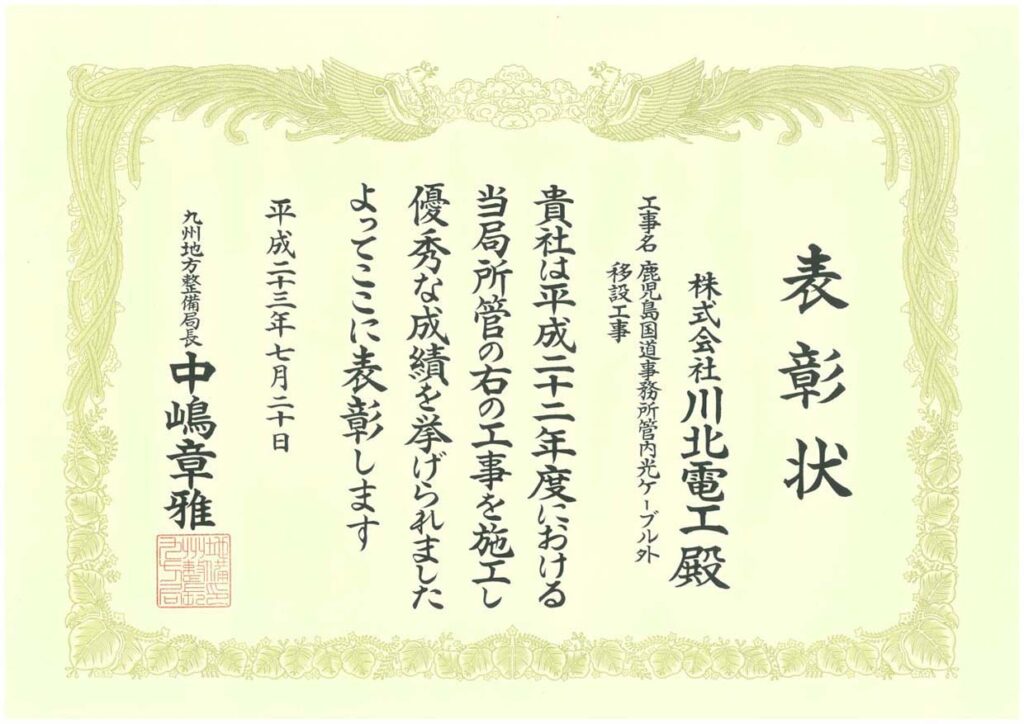 表彰状
株式会社川北電工殿
工事名 鹿児島国道事務所管内光ケーブル外
移設工事
貴社は平成二十二年度における
当局所管の右の工事を施工し
優秀な成績を挙げられました
よってここに表彰します
平成二十三年七月二十日
九州地方整備局長 中嶋章雅